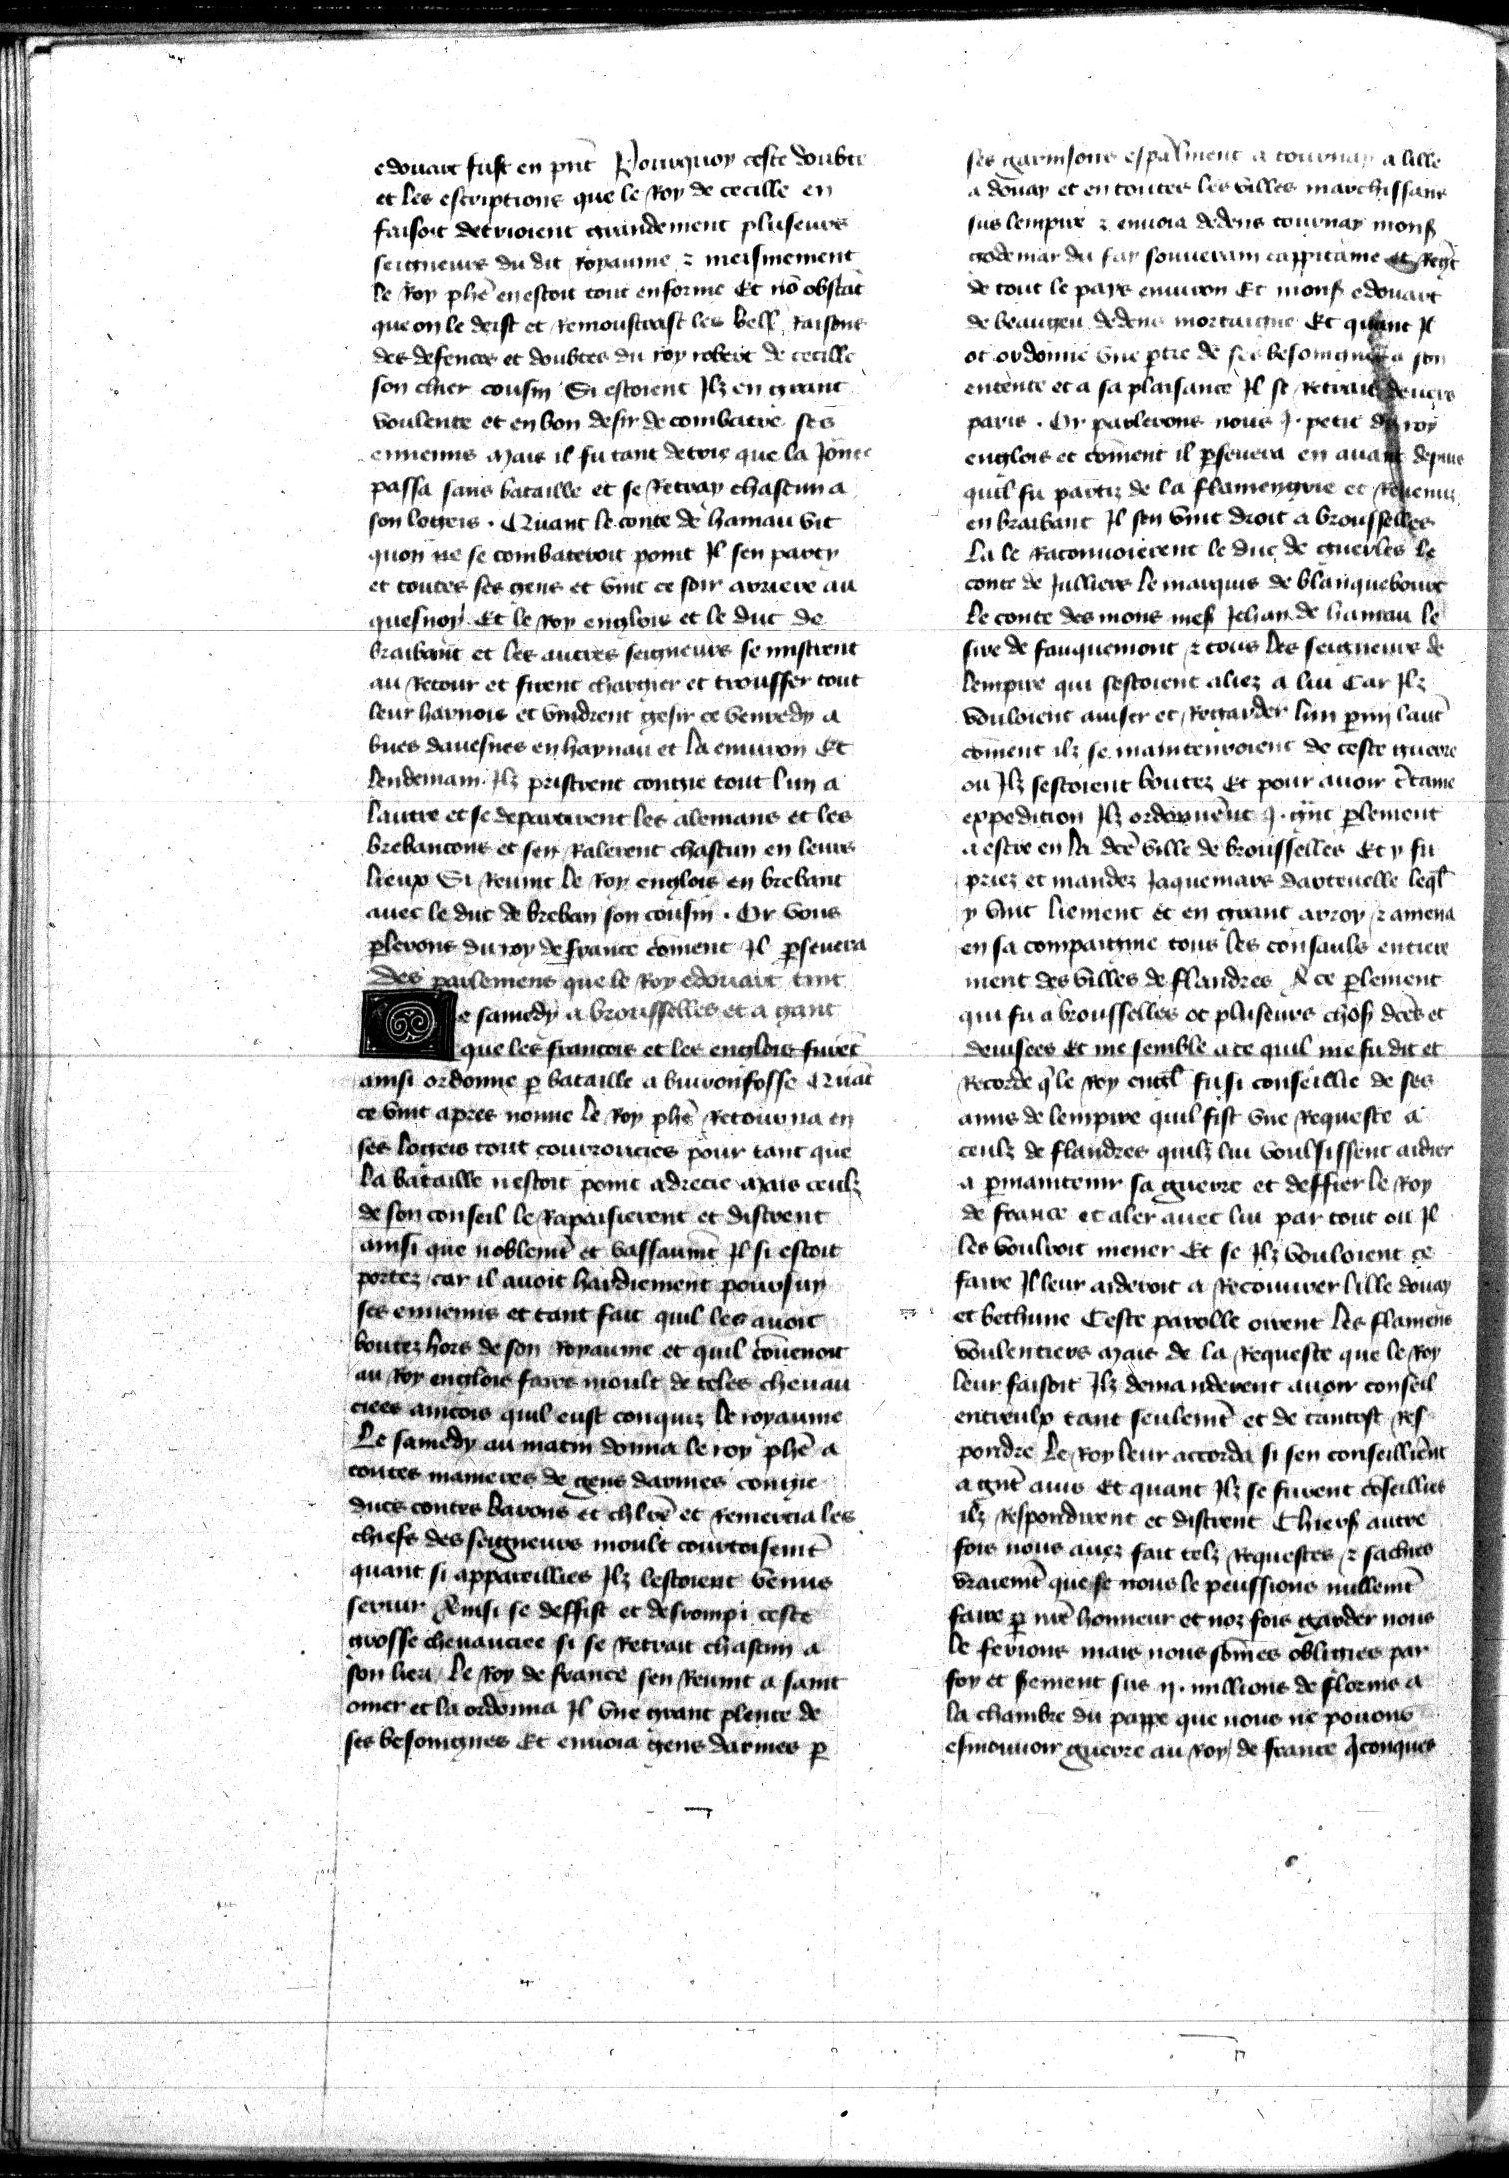 edouart fust en pñt Pourquoy ceste doubte
et les escriptions que le Roy de cecille en
faisoit detrioient grandement pluseurs
seigneurs du dit Royaume z meismement
le Roy phẽ en estoit tout enforme Et nõ obstãt
que on le deist et Remoustrast les bell Raisons
des defences et doubtes du roy robert de cecille
son chier cousin Si estoient Ilz en grant
voulente et en bon desir de combatre ses
ennemis Mais il fu tant detrie que la Jõnee
passa sans bataille et se Retray chascun a
son logeis . Quant le conte de hainau vit
quon ne se combateroit point Il sen party
et toutes ses gens et vint ce soir arriere au
quesnoy Et le Roy englois et le duc de
braibant et les autres seigneurs se mistrent
au Retour et firent chargier et trousser tout
leur harnois et vindrent gesir ce venredy a
bues davesnes en haynau et la environ Et
lendemain Ilz pristrent congie tout lun a
lautre et se departirent les alemans et les
brebancons et sen Ralerent chascun en leurs
lieux Si Revint le Roy englois en brebant
avec le duc de breban son cousin . Or vous
plerons du roy de france cõment Il psevera
Des parlemens que le Roy edouart tint
e samedy a brousselles et a gant
que les francois et les englois furẽt
ainsi ordonne p bataille a buironfosse Quãt
ce vint apres nonne le Roy phẽ Retourna en
ses logeis tout courroucies pour tant que
la bataille nestoit point adrecie Mais ceulz
de son conseil le Rapaisierent et distrent
ainsi que noblemẽt et vassaumẽt Il si estoit
portez car il avoit hardiement poursuy
ses ennemis et tant fait quil les avoit
boutez hors de son Royaume et quil cõvenoit
au Roy englois faire moult de teles chevau
ciees aincois quil eust conquiz le royaume
Le samedy au matin donna le roy phẽ a
toutes manieres de gens darmes congie
ducs contes barons et chlrẽ et Remercia les
chiefs des seigneurs moult courtoisemẽt
quant si appareillies Ilz lestoient venus
servir Ainsi se deffist et desrompi ceste
grosse chevauciee si se Retrait chascun a
son lieu Le Roy de france sen Revint a saint
omer et la ordonna Il vne grant plente de
ses besoingnes Et envoia gens darmes p
ses garnisons espãlment a tournay a lille
a douay et en toutes les villes marchissans
sus lempire z envoia dedens tournay mons
godemar du fay souverain cappitaine et Regt
de tout le pays environ Et mons edouart
de beaugeu dedens mortaigne Et quant Il
ot ordonne vne ptie de ses besoingnes a son
entente et a sa plaisance Il se Retrait devers
paris . Or parlerons nous J. petit du roy
englois et cõment il psevera en avant depuis
quil fu partiz de la flamengrie et Revenuz
en braibant Il sen vint droit a brousselles
La le Raconvoierent le duc de guerles le
conte de Julliers le marquis de blanquebourc
le conte des mons mes Jehan de hainau le
sire de fauquemont z tous les seigneurs de
lempire qui sestoient aliez a lui Car Ilz
vouloient aviser et Regarder lun pmy lautˀ
cõment ilz se maintenroient de ceste guerre
ou Ilz sestoient boutez Et pour avoir cˀtaine
expedition Ilz ordonnẽnt J. gñt plement
a estre en la dcẽ ville de brousselles Et y fu
priez et mandez Jaquemars dartevelle leql
y vint liement et en grant arroy z amena
en sa compaignie tous les consaulx entiere
ment des villes de flandres A ce plement
qui fu a brousselles ot pluseurs chos dcẽs et
devisees Et me semble a ce quil me fu dit et
Recorde q̃ le Roy engl fu si conseillie de ses
amis de lempire quil fist vne Requeste a
ceulz de flandres quilz lui voulsissent aidier
a pmaintenir sa guerre et deffier le Roy
de france et aler avec lui par tout ou Il
les vouldroit mener Et se Ilz vouloient ce
faire Il leur aideroit a Recouvrer lille douay
et bethune Ceste parolle oirent les flamens
voulentiers Mais de la Requeste que le Roy
leur faisoit Ilz demanderent avoir conseil
entreulx tant seulemẽt et de tantost Res
pondre le Roy leur accorda si sen conseilliẽnt
a gñt avis Et quant Ilz se furent cõseillies
ilz Respondirent et distrent Chiers autre
fois nous avez fait telz Requestes z sachies
vraiemẽt que se nous le peussions nullemẽt
faire p nrẽ honneur et noz fois garder nous
le ferions mais nous sõmes obligies par
foy et sˀement sus ij. millions de florins a
la chambre du pappe que nous ne povons
esmouvoir guerre au Roy de france qconques